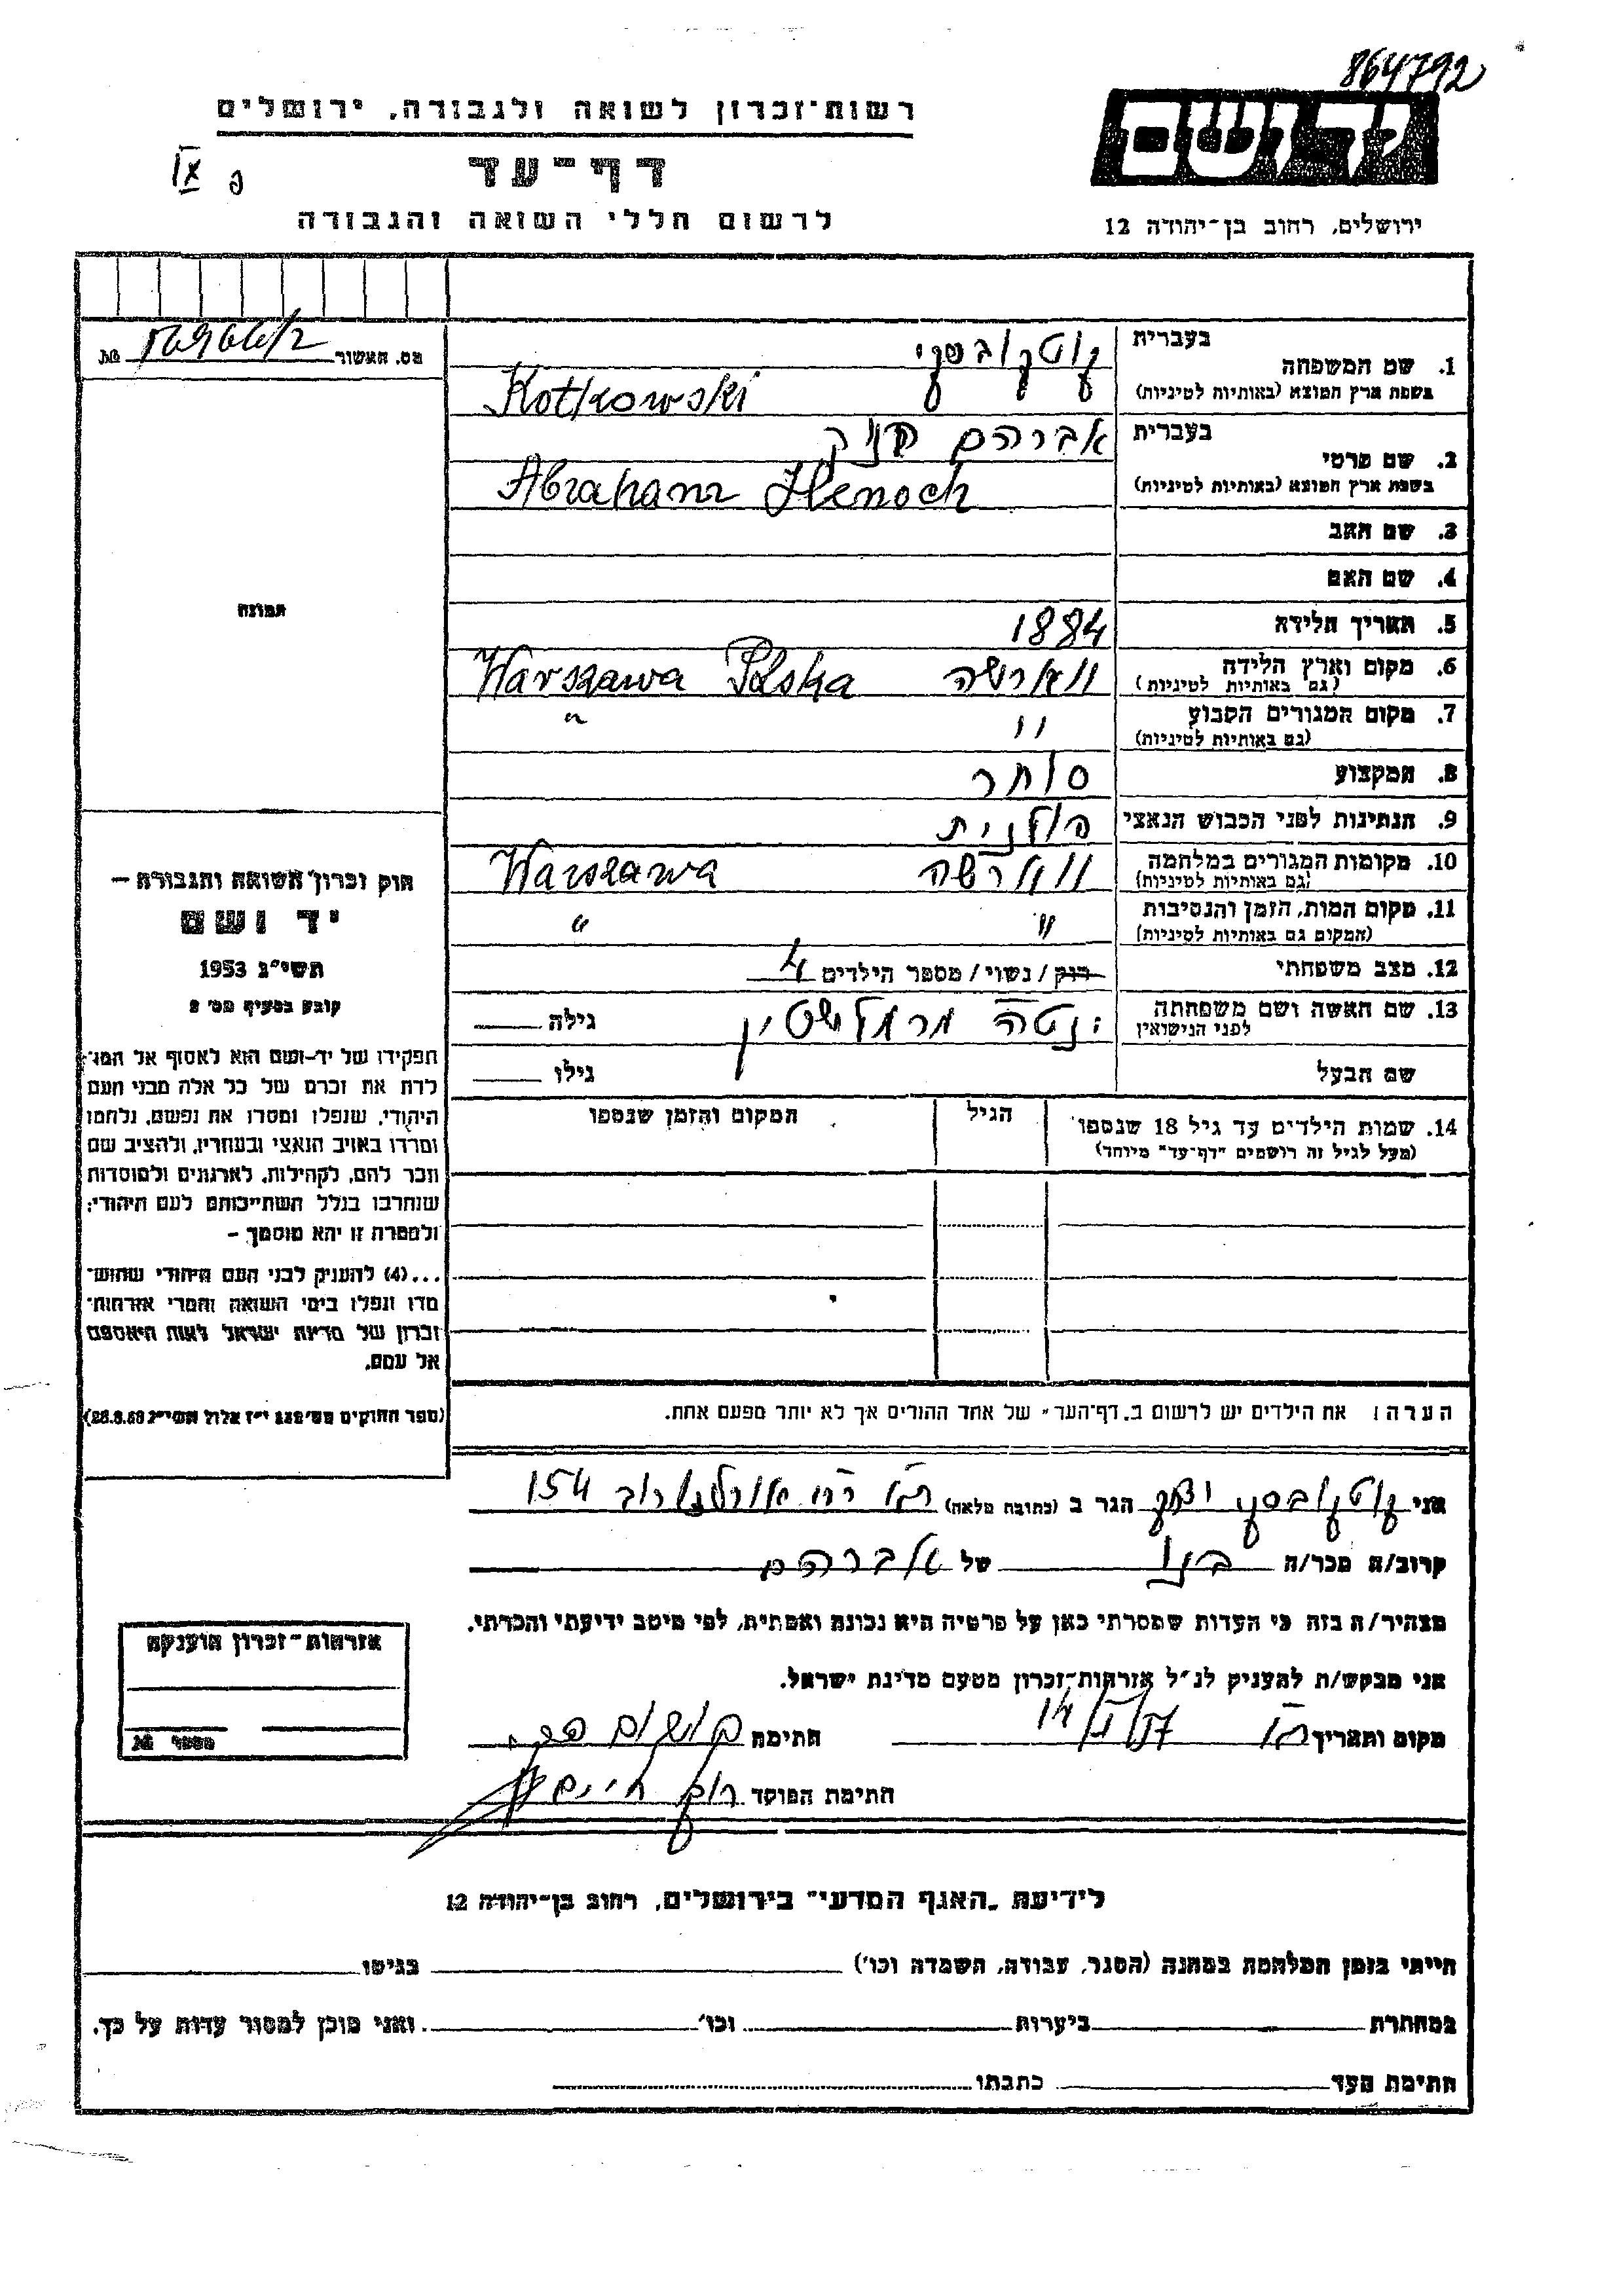 864792
יד ושם
רשות־זכרון לשואה ולגבורה, ירושלים
דף־עד
לרשום חללי השואה והגבורה
פ IX
ירושלים, רחוב בן־יהודה 12
מס. האשור №
בעברית קוטקובסקי
1. שם המשפחה
בשפת ארץ המוצא (באותיות לטיניות) Kotkowski
בעברית אברהם
2. שם פרטי
בשפת ארץ המוצא (באותיות לטיניות) Abraham Henoch
3. שם האב
4. שם האם
5. תאריך הלידה 1884
6. מקום וארץ הלידה ווארשה Warszawa Polska
(גם באותיות לטיניות)
7. מקום המגורים הקבוע " "
(גם באותיות לטיניות)
8. המקצוע סוחר
9. הנתינות לפני הכבוש הנאצי פולנית
10. מקומות המגורים במלחמה ווארשה Warszawa
(גם באותיות לטיניות)
11. מקום המות, הזמן והנסיבות " "
(המקום גם באותיות לטיניות)
12. מצב משפחתי רוק / נשוי / מספר הילדים 4
13. שם האשה ושם משפחתה גילה
לפני הנישואין
שם הבעל גילו
14. שמות הילדים עד גיל 18 שנספו הגיל המקום והזמן שנספו
(מעל לגיל זה רושמים "דף־עד" מיוחד)
תמונה
חוק זכרון השואה והגבורה —
יד ושם
תשי"ג 1953
קובע בסעיף מס' 2
תפקידו של יד־ושם הוא לאסוף אל המו־
לדת את זכרם של כל אלה מבני העם
היהודי, שנפלו ומסרו את נפשם, נלחמו
ומרדו באויב הנאצי ובעוזריו, ולהציב שם
וזכר להם, לקהילות, לארגונים ולמוסדות
שנחרבו בגלל השתייכותם לעם היהודי;
ולמטרה זו יהא מוסמך —
...(4) להעניק לבני העם היהודי שהוש־
מדו ונפלו בימי השואה והמרי אזרחות־
זכרון של מדינת ישראל לאות היאספם
אל עמם.
(ספר החוקים מס' 132 י"ז אלול תשי"ג 28.8.53)
הערה: את הילדים יש לרשום ב„דף־העד" של אחד ההורים אך לא יותר מפעם אחת.
אני קוטקובסקי יצחק הגר ב (כתובת מלאה) ת"א רח' ארלוזורוב 154
קרוב/ה מכר/ה בנו של אברהם
מצהיר/ה בזה כי העדות שמסרתי כאן על פרטיה היא נכונה ואמתית, לפי מיטב ידיעתי והכרתי.
אני מבקש/ת להעניק לנ"ל אזרחות־זכרון מטעם מדינת ישראל.
מקום ותאריך ת"א חתימה
חתימת הפוקד
אזרחות־זכרון הוענקה
מספר №
לידיעת „האגף המדעי" בירושלים, רחוב בן־יהודה 12
הייתי בזמן המלחמה במחנה (הסגר, עבודה, השמדה וכו') בגיטו
במחתרת ביערות וכו' ואני מוכן למסור עדות על כך.
חתימת העד כתבתו